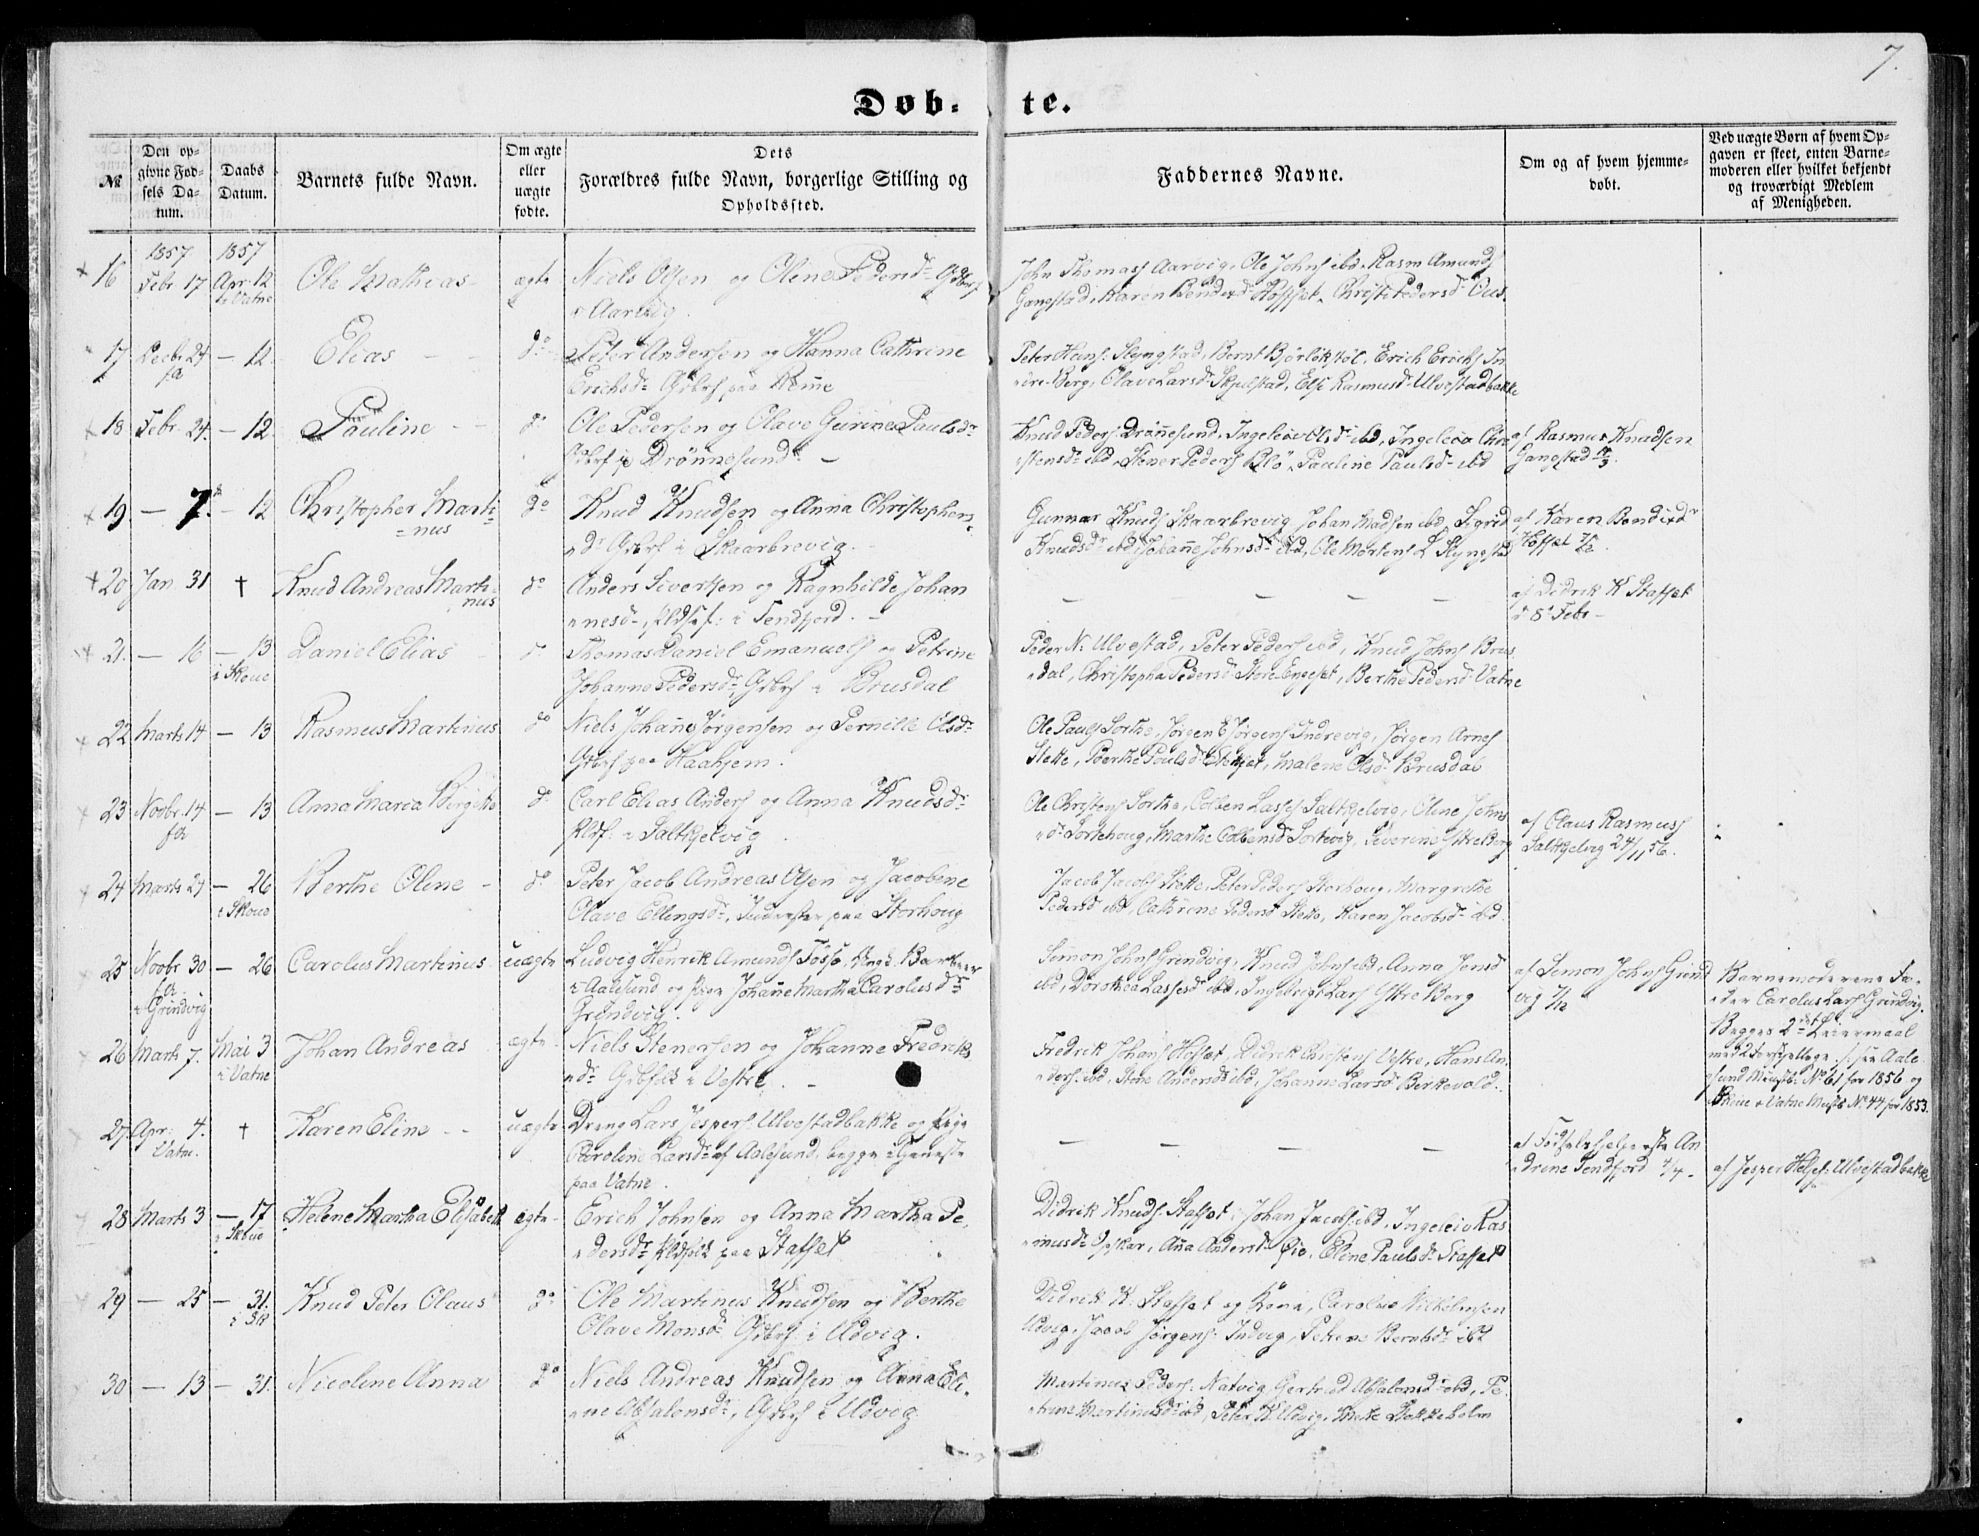 7.
Døb- te.
№
Den opgivne Fødsels Datum.
Daabs Datum.
Barnets fulde Navn.
Om ægte eller uægte fødte.
Dets Forældres fulde Navn, borgerlige Stilling og Opholdssted.
Faddernes Navne.
Om og af hvem hjemmedøbt.
Ved uægte Børn af hvem Opgaven er skeet, enten Barnemoderen eller hvilket bekjendt og troværdigt Medlem af Menigheden.
1857 1857
16 Febr 17 Apr 12 Ole Mathias ægte Niels Olsen og Oline Pedersdr
i Vatne
i Aarvig.
John Thomass Aarvig, Ole Johns ibd. Rasm Amunds
Gangstad, Karen
17 Decbr 24 - 12 Elias do Peter Andersen og Hanna Cathrine
Erichsdr Gbrf paa Rønne
Peter Hans. Slyngstad, Bernt Erich Erichs In
dre-Berg, Olave Larsd. Elsi Rasmusd. Ulvestadbakke
18 Febr 24. - 12. Pauline do Ole Pedersen og Olave Gurine Paulsdr
Drønnesund
Knud Peders. Drønnesund, Ingeleiv Olsdr ibd, Ingeleiv Chri
stensdr ibd, Stener Peders Pauline Paulsd. ibd
af Rasmus Knudsen
Gangstad
19. - 7. - 12 Christopher Marti-
nus
do Knud Knudsen og Anna Christophers
dr Gbrf i Skaarbrevig.
Gunnar Knuds Skaarbrevig Johan Madsen ibd, Sigrid
Knudsdr ibd, Johanne Johnsdr ibd, Ole Mortens L. Slyngstad
af Karen
20 Jan 31 † Knud Andreas Marti-
nus
do Anders Sivertsen og Ragnhilde Johan
nesdr, i Tendfjord.
af Didrik K Stafset
d 8 Febr
21. - 16 - 13 Daniel Elias Thomas Daniel Emanuels og Petrine
i Skoue
Johanne Pedersdr. Gbrf i Brusdal
Peder N. Ulvestad, Peter Peders ibd, Knud Johns Brus
dal, Christopha Pedersd Store-Engeset, Berthe Pedersd Vatne
22 Marts 14 - 13 Rasmus Martinus do Niels Johan Jørgensen og Pernille Olsdr
Gbrf paa Haahjem.
Ole Pauls Sorthe, Jørgen E Jørgens Indrevig, Jørgen Arnes
Slette, Berthe Poulsd Malene Olsd. Brusdal
23 Novbr. 14 - 13 Anna Maria Birgithe do Carl Elias Anders og Anna Knudsdr
i Saltkjelvig
Ole Christens Sorthe, Colben Lasses Saltkjelvig, Oline Johns
dr Sortehoug, Marthe Colbensd Sortevig, Severine Ystre Berg
af Claus Rasmuss
Saltkjelvig 24/11 56.
24 Marts 21 - 26 Berthe Oline do Peter Jacob Andreas Olsen og Jacobine
i Skoue
Olave Ellingsdr, Inderster paa Storhoug
Jacob Jacobs Slette, Peter Peders Storhoug, Margrethe
Pedersd ibd, Cathrine Pedersd Slette, Karen Jacobsdr ibd.
25 Novbr 30 - 26 Carolus Martinus uægte Ludvig Henrik Amunds
i Grindvig
i Aalesund og Pige Johanne Martha Carolusdr
Grindvig.
Simon Johns Grindvig, Knud Johns ibd, Anna Jensd
ibd, Dorothea Lassesd ibd, Ingebrigt Lars Ystre Berg
af Simon Johns Grind
vig
Barnemoderens Fa-
der Carolus Lars Grindvig.
Begges 2det Leiermaal
Aale
sund No 61 for 1856 og
Skoue & Vatne No 44 for 1853.
26 Marts 7. Mai 3 Johan Andreas ægte Niels Stenersen og Johanne Fredriks
i Vatne
dr i Vestre.
Fredrik Johans Hofset, Didrik Christens Vestre, Hans An
ders. ibd, Stine Andersd ibd, Johanne Larsd Berkevold.
27. Apr. 4. † Karen Eline uægte Dreng Lars Jespers. Ulvestadbakke og Pige
Vatne.
Caroline Larsdr af Aalesund, begge i Tjeneste
paa Vatne.
af Fødselshjelperske An
drine Tendfjord 4/4.
af Jesper Ulvestadbakke
28 Marts 3 - 17 Helene Martha Elisabeth ægte Erich Johnsen og Anna Martha Pe
i Skoue
dersdr paa Stafset
Didrik Knuds. Stafset, Johan Jacobs. ibd, Ingeleiv Ras
musdr Opskar, Ana Andersd. Øie, Eline Paulsdr Stafset
29 - 25 - 31. Knud Peter Olaus do Ole Martinus Knudsen og Berthe
i Sk
Olave Monsdr Gbrf i Udvig.
Didrik K. Stafset og Kone, Carolus Vilhelmsen
Udvig, Jacob Jørgens. Indvig, Berntsdr ibd
30 - 13 - 31. Nicoline Anna do Niels Andreas Knudsen og Anna Eli-
ne Absalonsdr, Gbrf i Udvig
Martinus Peders. Natvig, Gertrud Absalonsd. ibd, Pe
trine Martinusdr ibd, Peter K Udvig,